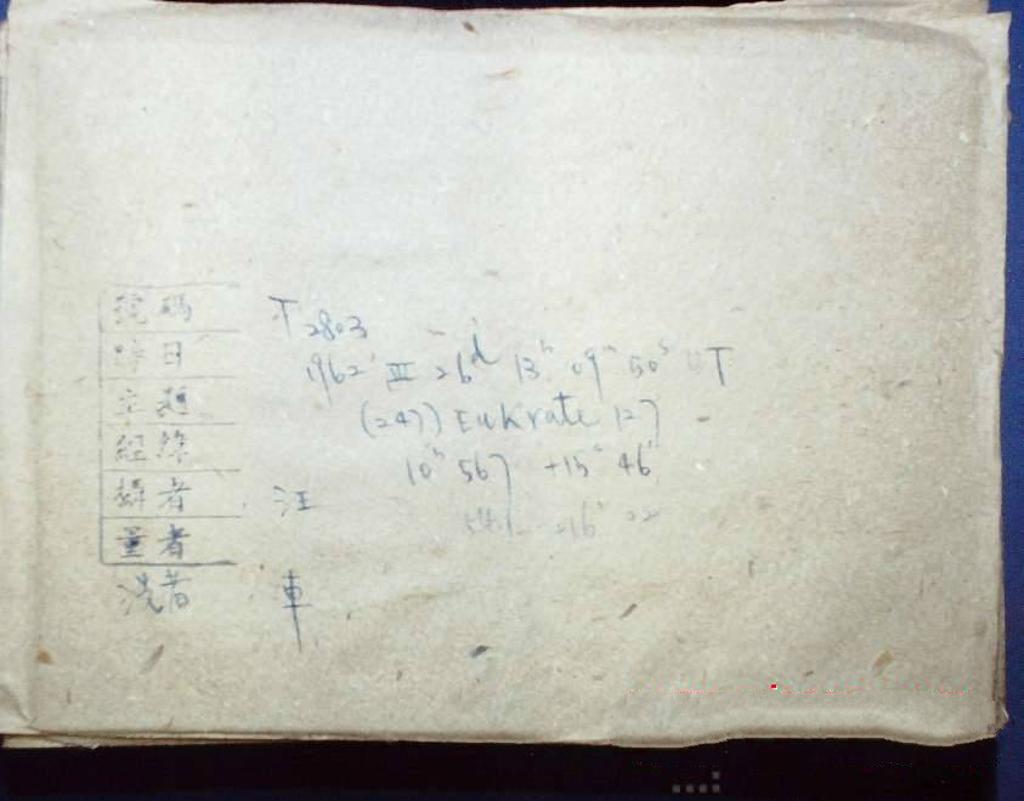 號碼 T 2803
時日 1962 III 26d 13h 09m 50s UT
主題 (247) Eukrate 127
經緯 10h 567 +15° 46'
攝者 汪
量者
洗者 車